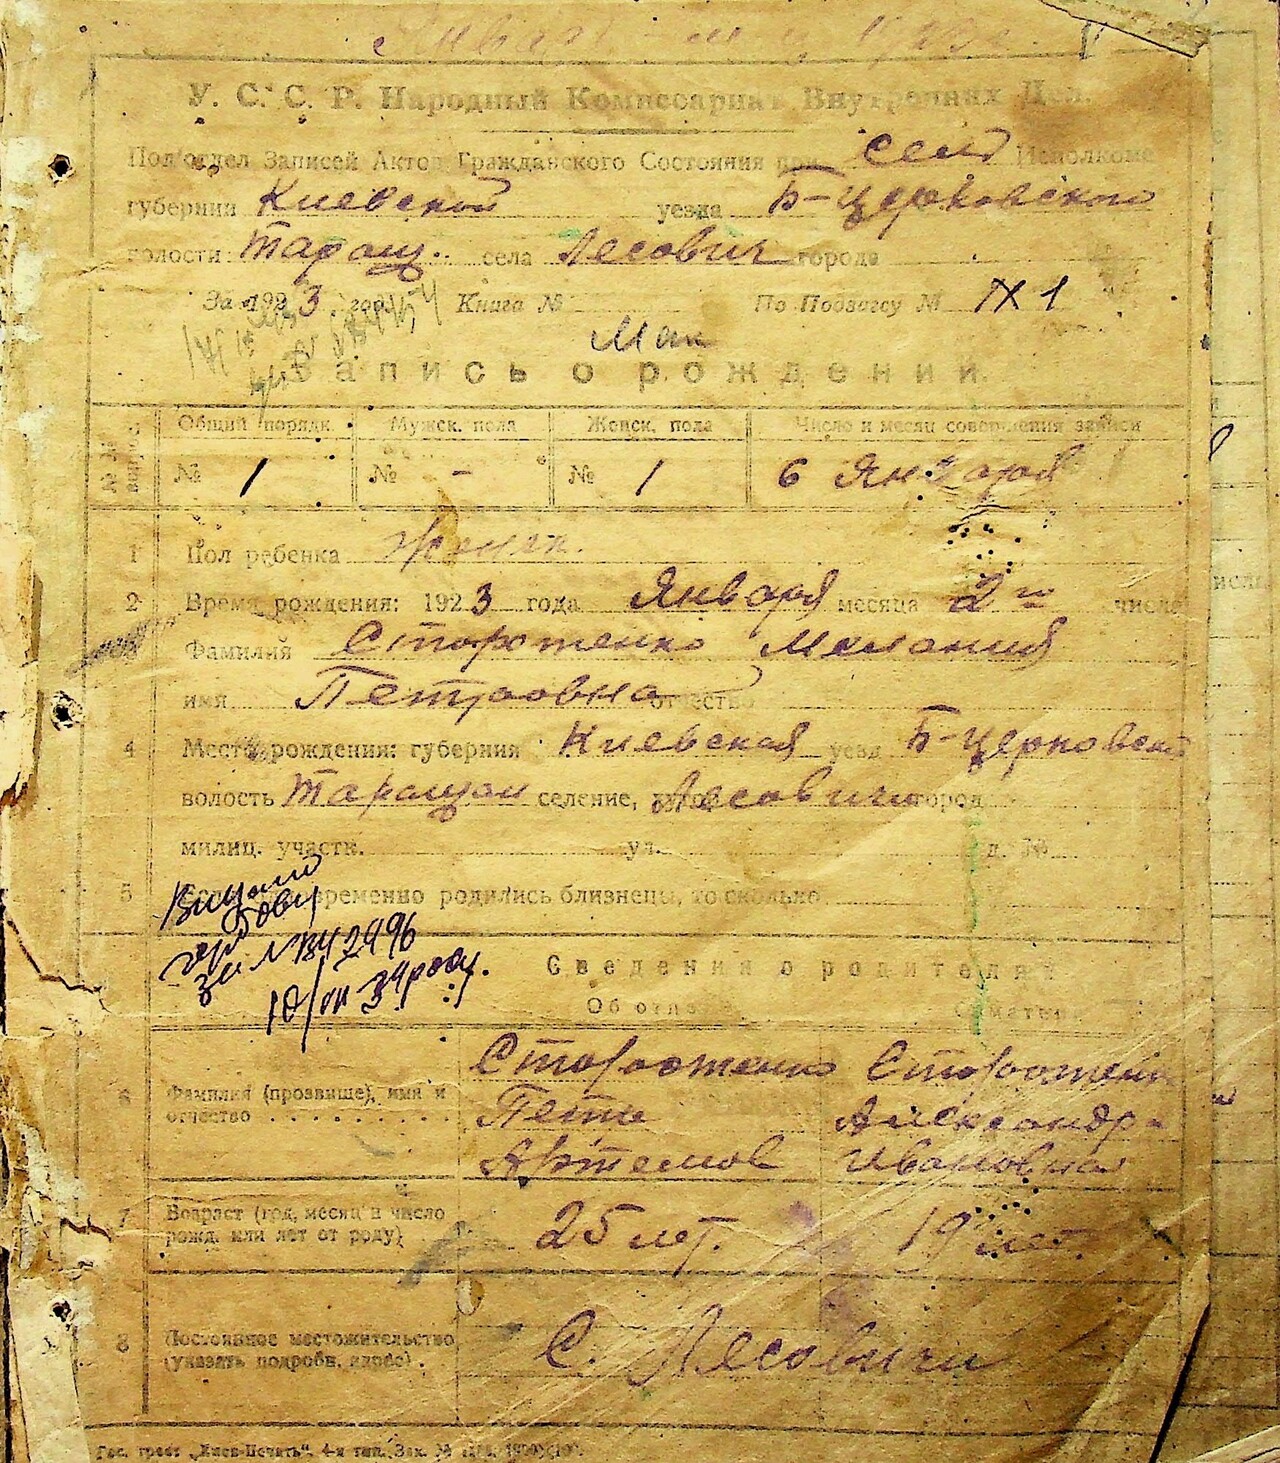 У. С. С. Р. Народный Комиссариат Внутренних Дел.
Под'отдел Записей Актов Гражданского Состояния при сель Исполкоме
губернии Киевской уезда Б-Церковского
волости: Таращ. села Лесович города
За 1923 год. Книга № По Подзагсу № IX 1
Запись о рождении.
Общий порядк. Мужск. пола Женск. пола Число и месяц совершения записи
№ 1 № - № 1 6 Января
1 Пол ребенка Женск.
2 Время рождения: 1923 года Января месяца 2го числа
Фамилия Стороженко Мелания
имя Петровна отчество
4 Место рождения: губерния Киевская уезд Б-Церковский
волость Таращан селение, Лесовичи город
милиц. участк. ул. д. №
5 временно родились близнецы, то сколько
10/VII 34 року.
Сведения о родителях
Об отце О матери
6 Фамилия (прозвище), имя и Стороженко Стороженко
отчество Петро Александра
Артемов Ивановна
7 Возраст (год, месяц и число
рожд. или лет от роду) 25 лет. 19 лет.
8 Постоянное местожительство
(указать подробн. адрес). С. Лесовичи
Гос. трест „Киев-Печать". 4-я тип. Зак. №